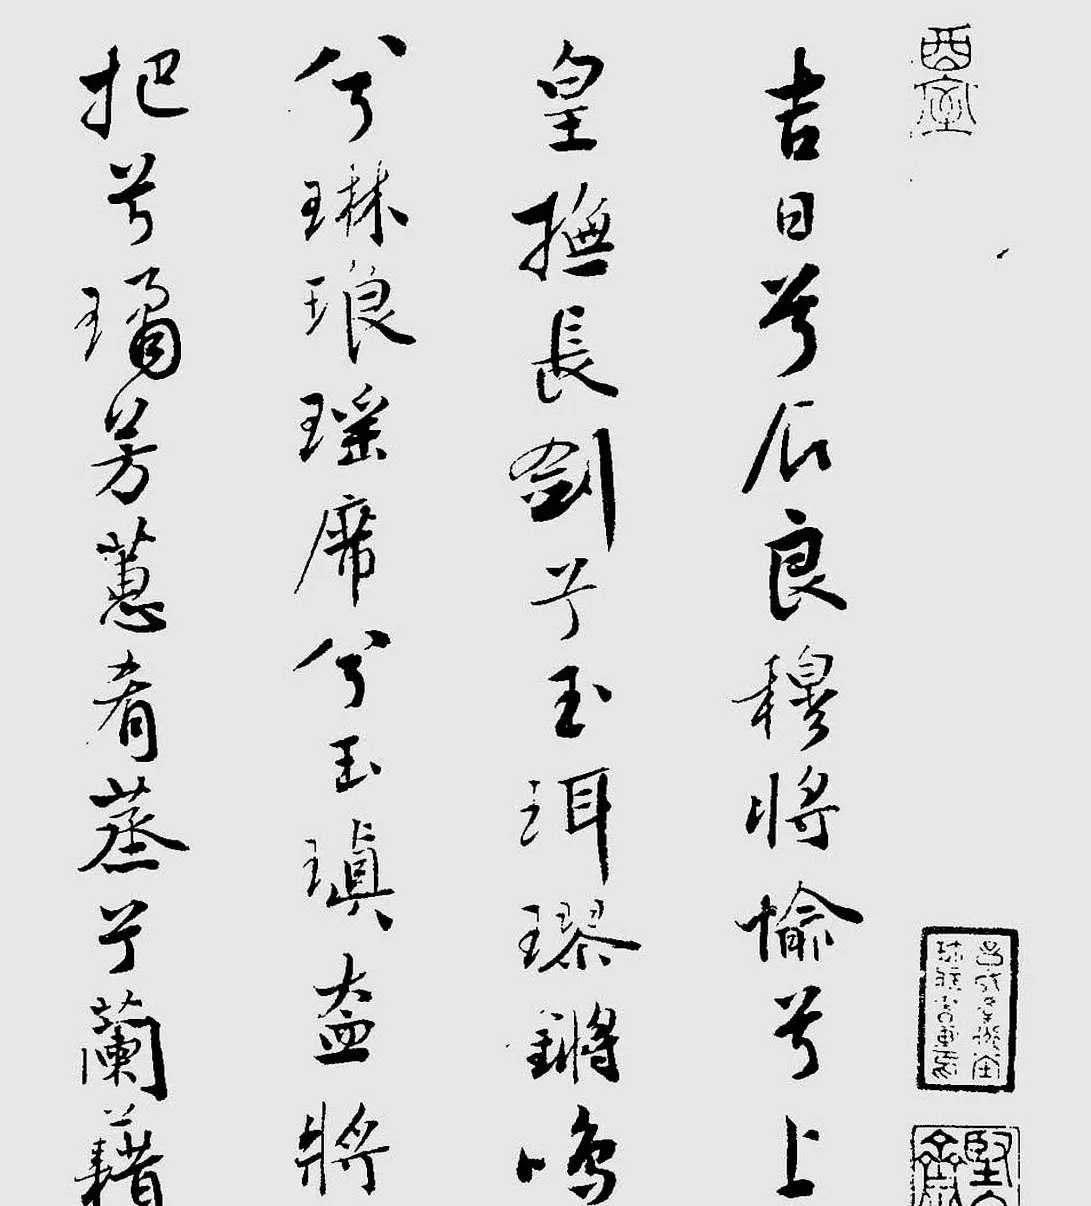 吉日兮辰良穆將愉兮上
皇撫長劍兮玉珥璆鏘鳴
兮琳琅瑶席兮玉瑱盍將
把兮璚芳蕙肴蒸兮蘭藉